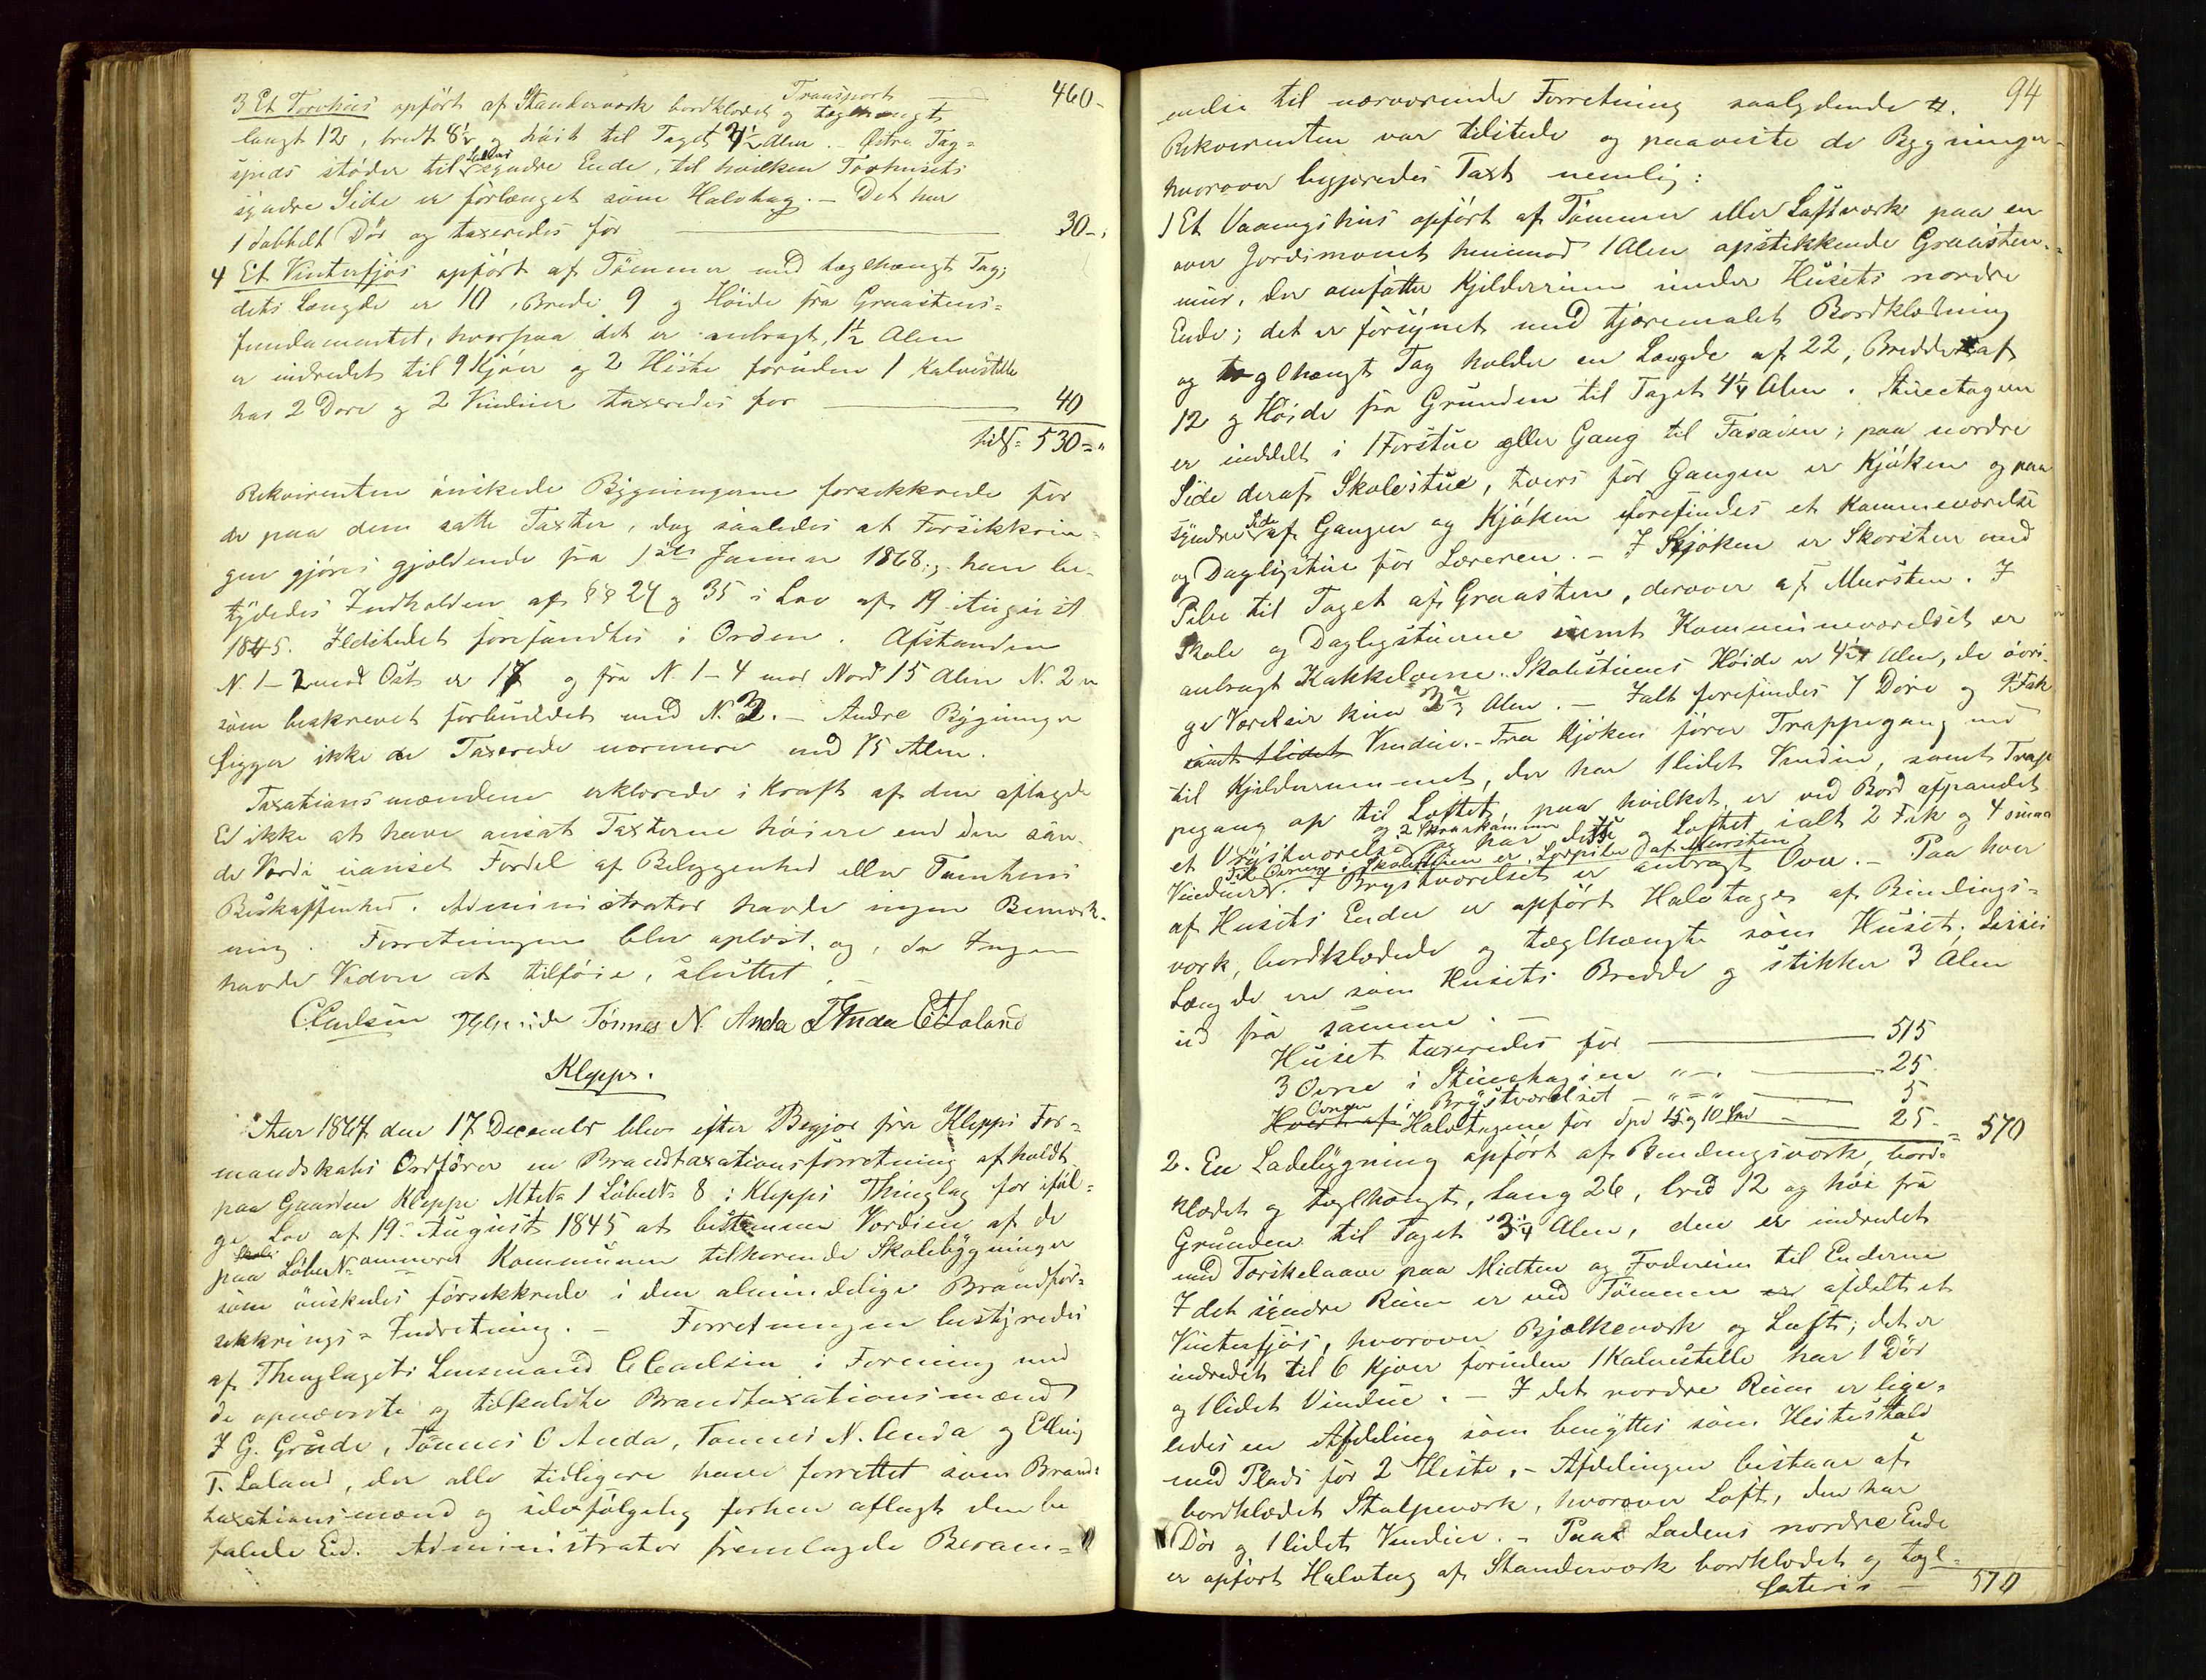 Transport 460-
3 Et Torvhus opført af Standerværk bordklædt og tæglhængt
langt 12, bredt 8½ og høit til Taget 4½ Alen. – Østre Tag=
spids støder til Ladens syndre Ende, til hvilken Torvhusets
syndre Side er forlænget som Halvtag. – Det har
1 dobbelt Dør og taxeredes for 30-
4 Et Vinterfjøs opført af Tømmer med tæglhængt Tag;
dets Længde er 10, Brede 9 og Høide fra Graastens=
fundamentet, hvorpaa det er anbragt, 1½ Alen
er indredet til 9 Kjøer og 2 Heste foruden 1 Kalvestelle
har 2 Døre og 2 Vinduer taxeredes for 40
tils= 530=
Rekvirenten ønskede Bygningerne forsikkrede for
de paa dem satte Taxter, dog saaledes at Forsikkrin=
gen gjøres gjældende fra 1ste Januar 1868; han be-
tydedes Indholden af §§ 24 og 35 i Lov af 19 August
1845. Ildstedet forefandtes i Orden. Afstanden
N. 1-2 mod Øst er 17 og fra N. 1-4 mod Nord 15 Alen N. 2 er
som beskrevet forbundet med N. 3. – Andre Bygninger
ligger ikke de Taxerede nærmere end 75 Alen.
Taxationsmændene erklærede i Kraft af den aflagde
Ed ikke at have ansat Taxterne høiere end den san-
de Værdi uanset Fordel af Beliggenhed eller Tomtens
Beskaffenhed. Administrator havde ingen Bemærk-
ning. Forretningen blev oplæst, og, da Ingen
havde Videre at tilføie, sluttet.
C. Carlsen Tønnes N. Anda T Anda E T Laland
Klepp.
Aar 1867 den 17 December blev efter Begjær fra Klepps For=
mandskabs Ordfører en Brandtaxationsforretning afholdt
paa Gaarden Kleppe Mtr.N= 1 Løbe N= 8 i Klepps Thinglag for iføl=
ge Lov af 19= August 1845 at bestemme Værdien af de
paa Løbe N= ommeret Kommunen tilhørende Skolebygninger
som ønskedes forsikkrede i den almindelige Brandfor=
sikkrings=Indretning. – Forretningen bestyredes
af Thinglagets Lensmand C Carlsen i Forening med
de opnævnte og tilkaldte Brandtaxationsmænd
J G. Grude, Tønnes O Anda, Tønnes N. Anda og Elling
T. Laland, der alle tidligere have forrettet som Brand=
taxationsmænd og selvfølgelig forhen aflagt den be
falede Ed. Administrator fremlagde Beram=
94
melse til nærværende Forretning saalydende
Rekvirenten var tilstede og paaviste de Bygninger
hvorover begjæredes Taxt nemlig:
1 Et Vaaningshus opført af Tømmer eller Laftværk paa en
over Jordsmonnet henimod 1 Alen opstikkende Graasten=
mur, der omfatter Kjelderrum under Husets nordre
Ende; det er forsynet med tjæremalet Bordklædning
og tæglhængt Tag holder en Længde af 22, Bredde af
12 og Høide fra Grunden til Taget 4¼ Alen. Stueetagen
er inddelt i 1 Forstue eller Gang til Fasaden; paa nordre
Side deraf Skolestue, tvers for Gangen er Kjøken og paa
syndre Side af Gangen og Kjøken forefindes et Kammeværelse
og Dagligstue for Læreren. – I Kjøken er Skorsten med
Pibe til Taget af Graasten, derover af Mursten. I
Skole og Dagligstuerne samt Kammersværelset er
anbragt Kakkelovne. Skolestuens Høide er 4½ Alen, de øvri-
ge Værelser kun 3⅔ Alen. – Ialt forefindes 7 Døre og 9 Fak
samt 1 lidet Vindue. – Fra Kjøken fører Trappegang ned
til Kjelderrummet, der har 1 lidet Vindue, samt Trap
pegang op til Loftet paa hvilket er ved Bord afpandet
et Qvistværelse og 2 Skraakammer og har dette og Loftet ialt 2 Fak og 4 smaa
Vinduer. Til Ovnen i Skolestuen er Lodpibe af Mursten
I Brystværelset er anbragt Ovn. – Paa hver
af Husets Ender er opført Halvtage af Bindings=
værk, bordklædede og tæglhængte som Huset. Disses
Længde ere som Husets Bredde og stikker 3 Alen
ud fra samme. –
Huset taxeredes for 515
3 Ovne i Stueetagen " – " 25
Ovnen i Brystværelset – " = " 5
Hvert af Halvtagene for Spd 15 og 10 Spd 25 = 570
2. En Ladebygning opført af Bindingsværk, bord=
klædet og tæglhængt, lang 26, bred 12 og høi fra
Grunden til Taget 3¼ Alen, den er indredet
med Tørskelaave paa Midten og Foderum til Enderne
I det syndre Rum er ved Tømmer afdelt et
Vinterfjøs, hvorover Bjælkeværk og Loft; det er
indredet til 6 Kjøer foruden 1 Kalvestelle har 1 Dør
og 1 lidet Vindue. – I det nordre Rum er lige=
ledes en Afdeling som benyttes som Hestestald
med Plads for 2 Heste. – Afdelingen bestaar af
bordklædet Stolpeværk, hvorover Loft, den har
1 Dør og 1 lidet Vindue. – Paa Ladens nordre Ende
er opført Halvtag af Standerværk bordklædet og tægl=
Lateris – 570